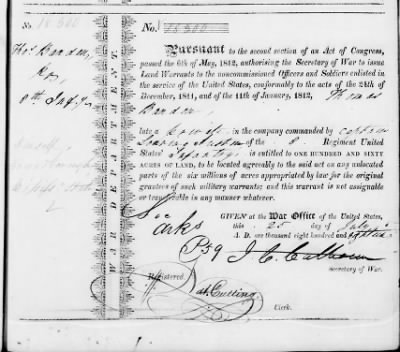 No. 18 300
Thos Bandon,
8th Infy
WAR DEPARTMENT
No. 18 300
Pursuant to the second section of an Act of Congress,
passed the 6th of May, 1812, authorising the Secretary of War to issue
Land Warrants to the noncommissioned Officers and Soldiers enlisted in
the service of the United States, conformably to the acts of the 24th of
December, 1811, and of the 11th of January, 1812, Thomas
Bandon
late a in the company commanded by
of the 8 Regiment United
States' Infantry is entitled to ONE HUNDRED AND SIXTY
ACRES OF LAND, to be located agreeably to the said act on any unlocated
parts of the six millions of acres appropriated by law for the original
grantees of such military warrants; and this warrant is not assignable
or transferable in any manner whatever.
GIVEN at the War Office of the United States,
this 25 day of July
A. D. one thousand eight hundred and
J C Calhoun
Secretary of War.
Registered
Cutting
Clerk.